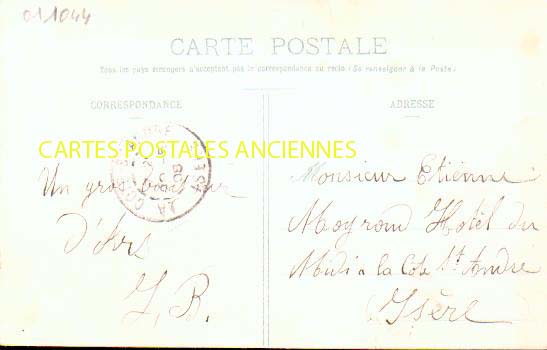 011044
CARTE POSTALE
Tous les pays étrangers n'acceptent pas la correspondance au recto (Se renseigner à la Poste)
CORRESPONDANCE
ADRESSE
CARTES POSTALES ANCIENNES
LA CÔTE
Un gros
D'
J. B.
Monsieur Etienne
Moyroud Hotel du
Midi à la Cote St André
Isère